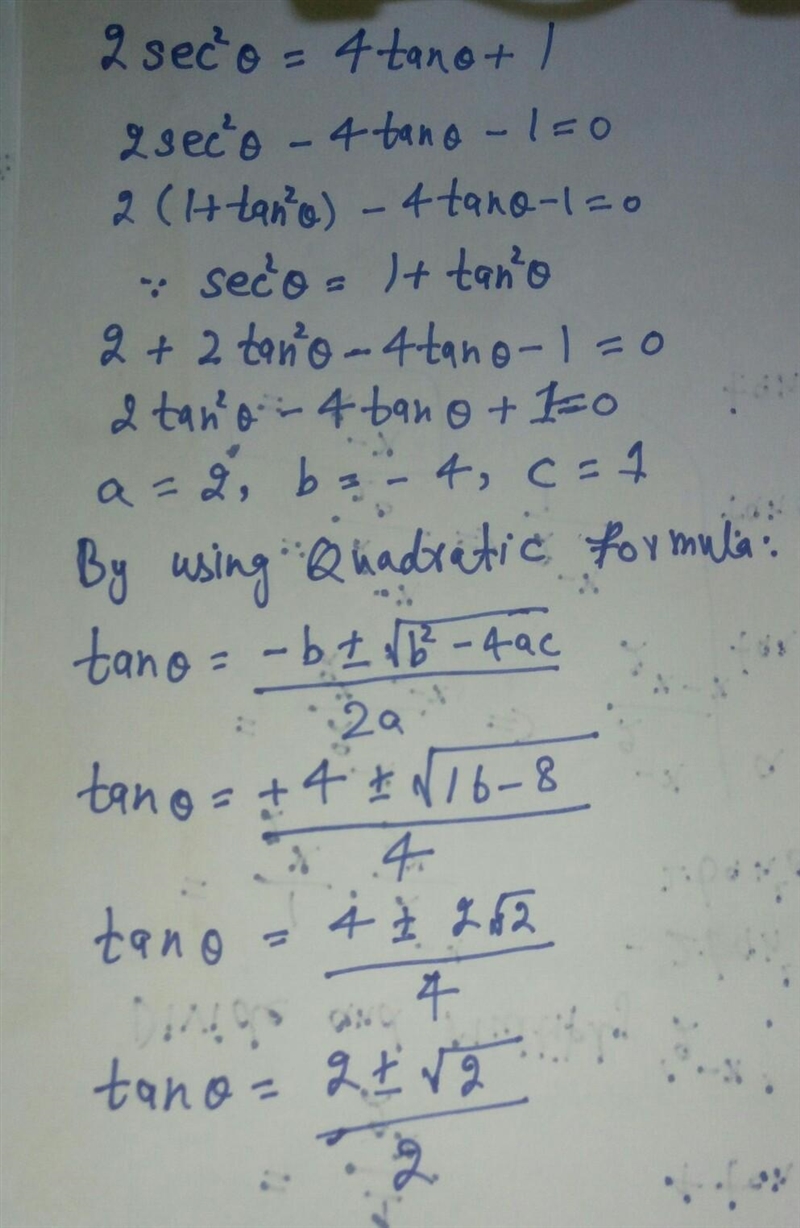 2 sec²θ = 4tanθ + 1
2sec²θ - 4tanθ - 1 = 0
2 (1 + tan²θ) - 4tanθ - 1 = 0
∵ sec²θ = 1 + tan²θ
2 + 2 tan²θ - 4tanθ - 1 = 0
2 tan²θ - 4 tan θ + 1 = 0
a = 2, b = - 4, c = 1
By using Quadratic formula:
tanθ = (-b ± √(b² - 4ac)) / 2a
tanθ = (+4 ± √(16 - 8)) / 4
tanθ = (4 ± 2√2) / 4
tanθ = (2 ± √2) / 2